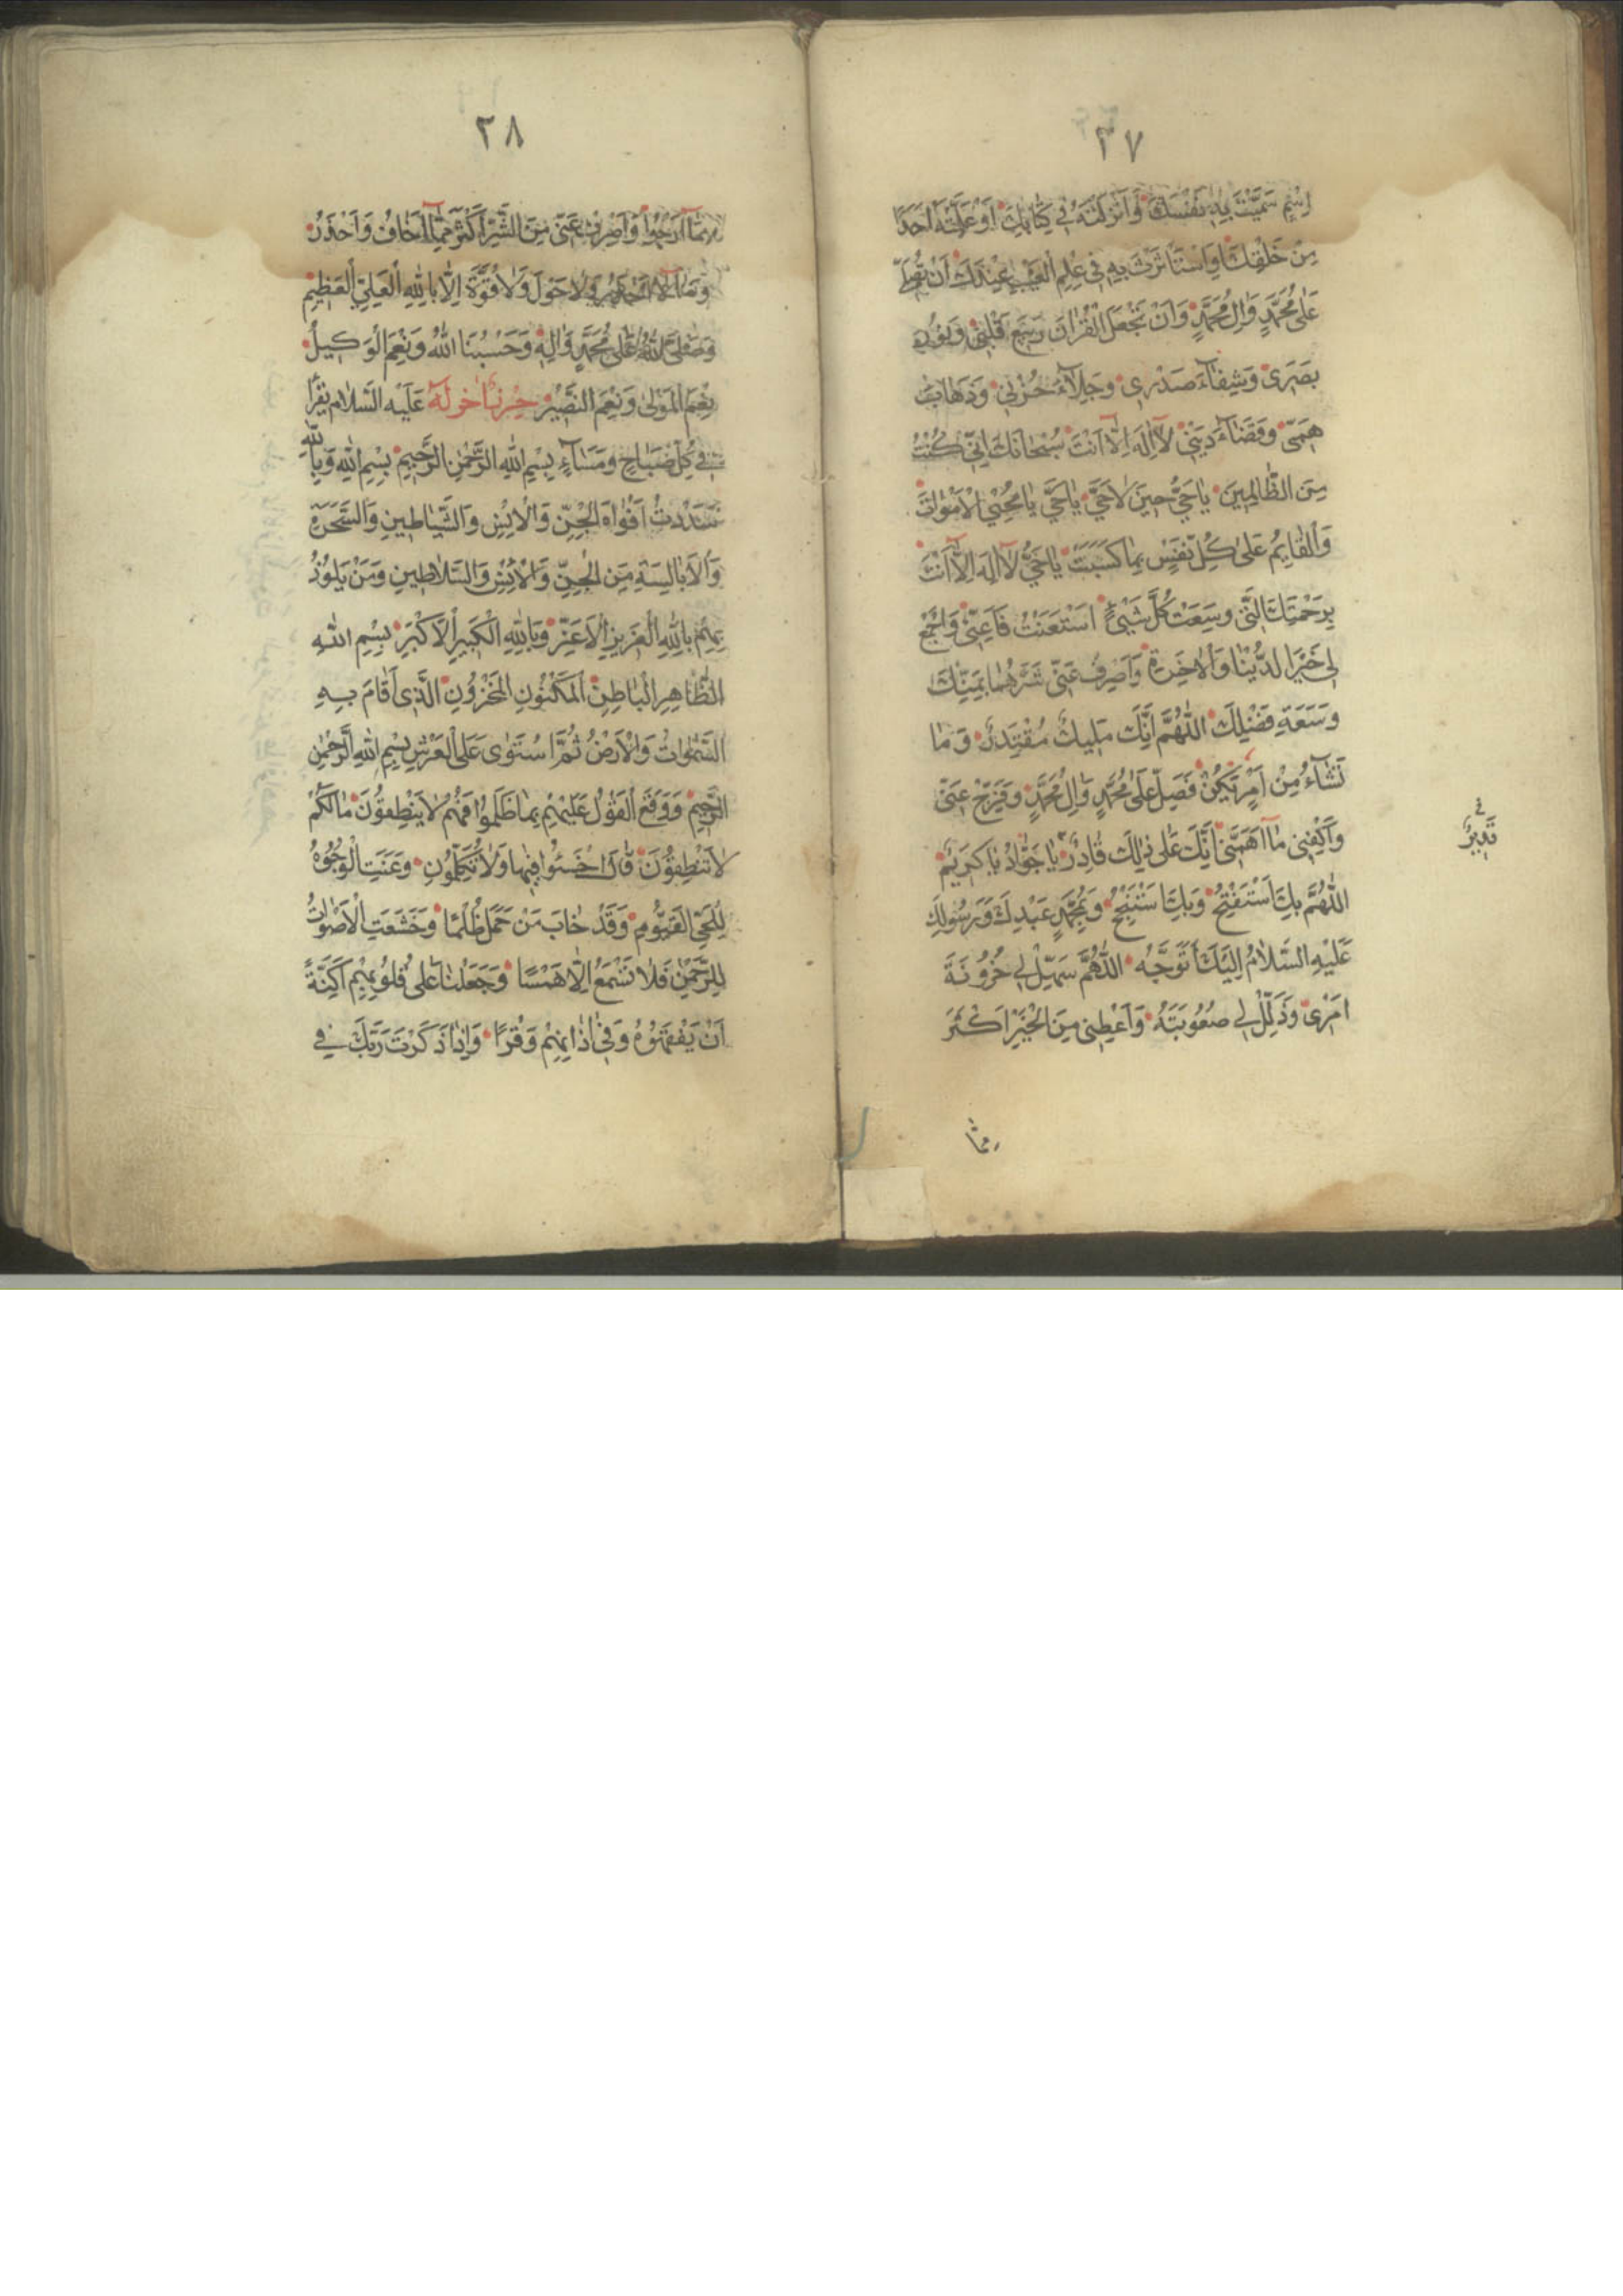 ٣٧
اِسْمٍ سَمَّيْتَ بِهِ نَفْسَكَ وَاَنْزَلْتَهُ فِي كِتَابِكَ اَوْ عَلَّمْتَهُ اَحَدًا
مِنْ خَلْقِكَ اَوِ اسْتَأْثَرْتَ بِهِ فِي عِلْمِ الْغَيْبِ عِنْدَكَ اَنْ تُصَلِّيَ
عَلَى مُحَمَّدٍ وَاٰلِ مُحَمَّدٍ وَاَنْ تَجْعَلَ الْقُرْاٰنَ رَبِيعَ قَلْبِي وَنُورَ
بَصَرِي وَشِفَآءَ صَدْرِي وَجَلَآءَ حُزْنِي وَذَهَابَ
هَمِّي وَقَضَآءَ دَيْنِي لَا اِلٰهَ اِلَّا اَنْتَ سُبْحَانَكَ اِنِّي كُنْتُ
مِنَ الظَّالِمِينَ يَا حَيُّ حِينَ لَا حَيَّ يَا حَيُّ يَا مُحْيِيَ الْاَمْوَاتِ
وَالْقَايِمُ عَلَى كُلِّ نَفْسٍ بِمَا كَسَبَتْ يَا حَيُّ لَا اِلٰهَ اِلَّا اَنْتَ
بِرَحْمَتِكَ الَّتِي وَسِعَتْ كُلَّ شَيْئٍ اسْتَعَنْتُ فَاَعِنِّي وَاجْمَعْ
لِي خَيْرَ الدُّنْيَا وَالْاٰخِرَةِ وَاصْرِفْ عَنِّي شَرَّهُمَا بِمَنِّكَ
وَسَعَةِ فَضْلِكَ اللّٰهُمَّ اِنَّكَ مَلِيكٌ مُقْتَدِرٌ وَمَا
تَشَآءُ مِنْ اَمْرٍ يَكُنْ فَصَلِّ عَلَى مُحَمَّدٍ وَاٰلِ مُحَمَّدٍ وَفَرِّجْ عَنِّي
وَاكْفِنِي مَا اَهَمَّنِي اِنَّكَ عَلَى ذٰلِكَ قَادِرٌ يَا جَوَادُ يَا كَرِيمُ
اللّٰهُمَّ بِكَ اَسْتَفْتِحُ وَبِكَ اَسْتَنْجِحُ وَبِمُحَمَّدٍ عَبْدِكَ وَرَسُولِكَ
عَلَيْهِ السَّلَامُ اِلَيْكَ اَتَوَجَّهُ اللّٰهُمَّ سَهِّلْ لِي حُزُونَةَ
اَمْرِي وَذَلِّلْ لِي صُعُوبَتَهُ وَاَعْطِنِي مِنَ الْخَيْرِ اَكْثَرَ
مِمَّا
٣٨
مِمَّا اَرْجُوا وَاصْرِفْ عَنِّي مِنَ الشَّرِّ اَكْثَرَ مِمَّا اَخَافُ وَاَحْذَرُ
وَلَا حَوْلَ وَلَا قُوَّةَ اِلَّا بِاللّٰهِ الْعَلِيِّ الْعَظِيمِ
وَصَلَّى اللّٰهُ عَلَى مُحَمَّدٍ وَاٰلِهِ وَحَسْبُنَا اللّٰهُ وَنِعْمَ الْوَكِيلُ
نِعْمَ الْمَوْلَى وَنِعْمَ النَّصِيرُ حِرْزٌ اٰخَرُ لَهُ عَلَيْهِ السَّلَام يُقْرَأُ
فِي كُلِّ صَبَاحٍ وَمَسَآءٍ بِسْمِ اللّٰهِ الرَّحْمٰنِ الرَّحِيمِ بِسْمِ اللّٰهِ وَبِاللّٰهِ
سَدَدْتُ اَفْوَاهَ الْجِنِّ وَالْاِنْسِ وَالشَّيَاطِينِ وَالسَّحَرَةِ
وَالْاَبَالِسَةِ مِنَ الْجِنِّ وَالْاِنْسِ وَالسَّلَاطِينِ وَمَنْ يَلُوذُ
بِهِمْ بِاللّٰهِ الْعَزِيزِ الْاَعَزِّ وَبِاللّٰهِ الْكَبِيرِ الْاَكْبَرِ بِسْمِ اللّٰهِ
الظَّاهِرِ الْبَاطِنِ الْمَكْنُونِ الْمَخْزُونِ الَّذِي اَقَامَ بِهِ
السَّمٰوَاتِ وَالْاَرْضَ ثُمَّ اسْتَوٰى عَلَى الْعَرْشِ بِسْمِ اللّٰهِ الرَّحْمٰنِ
الرَّحِيمِ وَوَقَعَ الْقَوْلُ عَلَيْهِمْ بِمَا ظَلَمُوا فَهُمْ لَا يَنْطِقُونَ مَا لَكُمْ
لَا تَنْطِقُونَ قَالَ اخْسَئُوا فِيهَا وَلَا تُكَلِّمُونِ وَعَنَتِ الْوُجُوهُ
لِلْحَيِّ الْقَيُّومِ وَقَدْ خَابَ مَنْ حَمَلَ ظُلْمًا وَخَشَعَتِ الْاَصْوَاتُ
لِلرَّحْمٰنِ فَلَا تَسْمَعُ اِلَّا هَمْسًا وَجَعَلْنَا عَلَى قُلُوبِهِمْ اَكِنَّةً
اَنْ يَفْقَهُوهُ وَفِي اٰذَانِهِمْ وَقْرًا وَاِذَا ذَكَرْتَ رَبَّكَ فِي